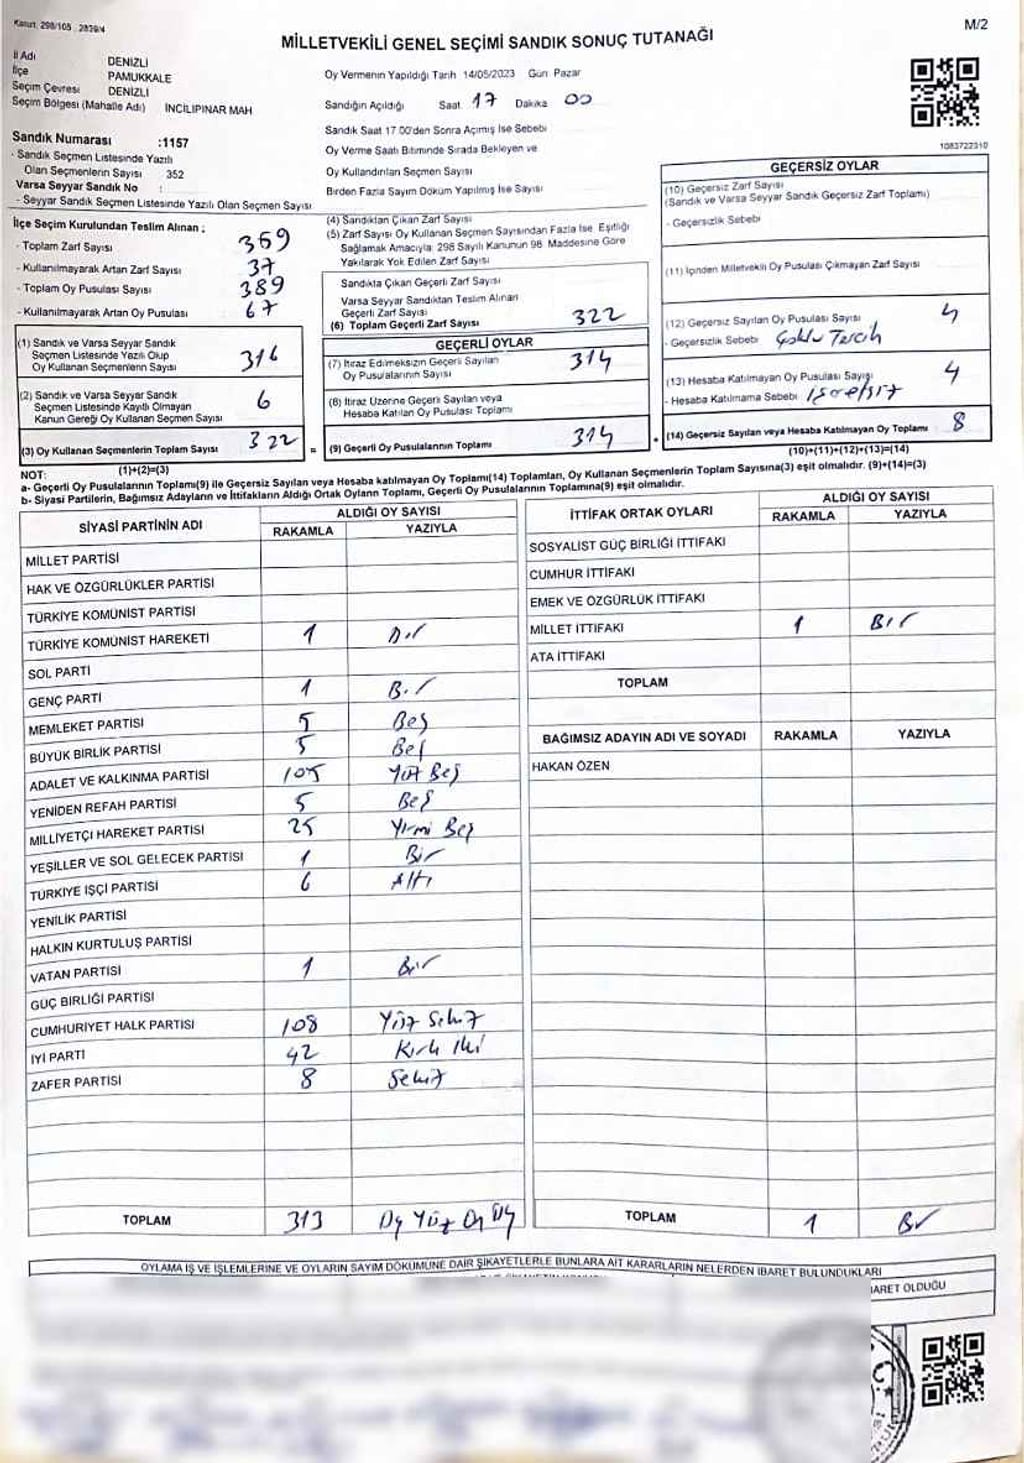 Kanun: 298/105 , 2839/4
M/2
MİLLETVEKİLİ GENEL SEÇİMİ SANDIK SONUÇ TUTANAĞI
İl Adı DENİZLİ
İlçe PAMUKKALE
Seçim Çevresi DENİZLİ
Seçim Bölgesi (Mahalle Adı) İNCİLİPINAR MAH
Sandık Numarası :1157
- Sandık Seçmen Listesinde Yazılı
Olan Seçmenlerin Sayısı 352
Varsa Seyyar Sandık No :
- Seyyar Sandık Seçmen Listesinde Yazılı Olan Seçmen Sayısı
Oy Vermenin Yapıldığı Tarih 14/05/2023 Gün Pazar
Sandığın Açıldığı Saat 17 Dakika 00
Sandık Saat 17.00'den Sonra Açılmış İse Sebebi
Oy Verme Saati Bitiminde Sırada Bekleyen ve
Oy Kullandırılan Seçmen Sayısı
Birden Fazla Sayım Döküm Yapılmış İse Sayısı
1083722310
İlçe Seçim Kurulundan Teslim Alınan ;
- Toplam Zarf Sayısı 359
- Kullanılmayarak Artan Zarf Sayısı 37
- Toplam Oy Pusulası Sayısı 389
- Kullanılmayarak Artan Oy Pusulası 67
(1) Sandık ve Varsa Seyyar Sandık
Seçmen Listesinde Yazılı Olup
Oy Kullanan Seçmenlerin Sayısı 316
(2) Sandık ve Varsa Seyyar Sandık
Seçmen Listesinde Kayıtlı Olmayan
Kanun Gereği Oy Kullanan Seçmen Sayısı 6
(3) Oy Kullanan Seçmenlerin Toplam Sayısı 322 =
(1)+(2)=(3)
(4) Sandıktan Çıkan Zarf Sayısı
(5) Zarf Sayısı Oy Kullanan Seçmen Sayısından Fazla İse Eşitliği
Sağlamak Amacıyla 298 Sayılı Kanunun 98. Maddesine Göre
Yakılarak Yok Edilen Zarf Sayısı
Sandıkta Çıkan Geçerli Zarf Sayısı
Varsa Seyyar Sandıktan Teslim Alınan
Geçerli Zarf Sayısı
(6) Toplam Geçerli Zarf Sayısı 322
GEÇERLİ OYLAR
(7) İtiraz Edilmeksizin Geçerli Sayılan
Oy Pusulalarının Sayısı 314
(8) İtiraz Üzerine Geçerli Sayılan veya
Hesaba Katılan Oy Pusulası Toplamı
(9) Geçerli Oy Pusulalarının Toplamı 314
GEÇERSİZ OYLAR
(10) Geçersiz Zarf Sayısı
(Sandık ve Varsa Seyyar Sandık Geçersiz Zarf Toplamı)
- Geçersizlik Sebebi
(11) İçinden Milletvekili Oy Pusulası Çıkmayan Zarf Sayısı
(12) Geçersiz Sayılan Oy Pusulası Sayısı 4
- Geçersizlik Sebebi Çoklu Tercih
(13) Hesaba Katılmayan Oy Pusulası Sayısı 4
- Hesaba Katılmama Sebebi İşaretsiz
(14) Geçersiz Sayılan veya Hesaba Katılmayan Oy Toplamı 8
(10)+(11)+(12)+(13)=(14)
NOT:
a- Geçerli Oy Pusulalarının Toplamı(9) ile Geçersiz Sayılan veya Hesaba katılmayan Oy Toplamı(14) Toplamları, Oy Kullanan Seçmenlerin Toplam Sayısına(3) eşit olmalıdır. (9)+(14)=(3)
b- Siyasi Partilerin, Bağımsız Adayların ve İttifakların Aldığı Ortak Oyların Toplamı, Geçerli Oy Pusulalarının Toplamına(9) eşit olmalıdır.
SİYASİ PARTİNİN ADI ALDIĞI OY SAYISI
RAKAMLA YAZIYLA
MİLLET PARTİSİ
HAK VE ÖZGÜRLÜKLER PARTİSİ
TÜRKİYE KOMÜNİST PARTİSİ
TÜRKİYE KOMÜNİST HAREKETİ 1 Bir
SOL PARTİ
GENÇ PARTİ 1 Bir
MEMLEKET PARTİSİ 5 Beş
BÜYÜK BİRLİK PARTİSİ 5 Beş
ADALET VE KALKINMA PARTİSİ 105 Yüz Beş
YENİDEN REFAH PARTİSİ 5 Beş
MİLLİYETÇİ HAREKET PARTİSİ 25 Yirmi Beş
YEŞİLLER VE SOL GELECEK PARTİSİ 1 Bir
TÜRKİYE İŞÇİ PARTİSİ 6 Altı
YENİLİK PARTİSİ
HALKIN KURTULUŞ PARTİSİ
VATAN PARTİSİ 1 Bir
GÜÇ BİRLİĞİ PARTİSİ
CUMHURİYET HALK PARTİSİ 108 Yüz Sekiz
İYİ PARTİ 42 Kırk İki
ZAFER PARTİSİ 8 Sekiz
TOPLAM 313 Üç Yüz On Üç
İTTİFAK ORTAK OYLARI ALDIĞI OY SAYISI
RAKAMLA YAZIYLA
SOSYALİST GÜÇ BİRLİĞİ İTTİFAKI
CUMHUR İTTİFAKI
EMEK VE ÖZGÜRLÜK İTTİFAKI
MİLLET İTTİFAKI 1 Bir
ATA İTTİFAKI
TOPLAM
BAĞIMSIZ ADAYIN ADI VE SOYADI RAKAMLA YAZIYLA
HAKAN ÖZEN
TOPLAM 1 Bir
OYLAMA İŞ VE İŞLEMLERİNE VE OYLARIN SAYIM DÖKÜMÜNE DAİR ŞİKAYETLERLE BUNLARA AİT KARARLARIN NELERDEN İBARET BULUNDUKLARI
İBARET OLDUĞU